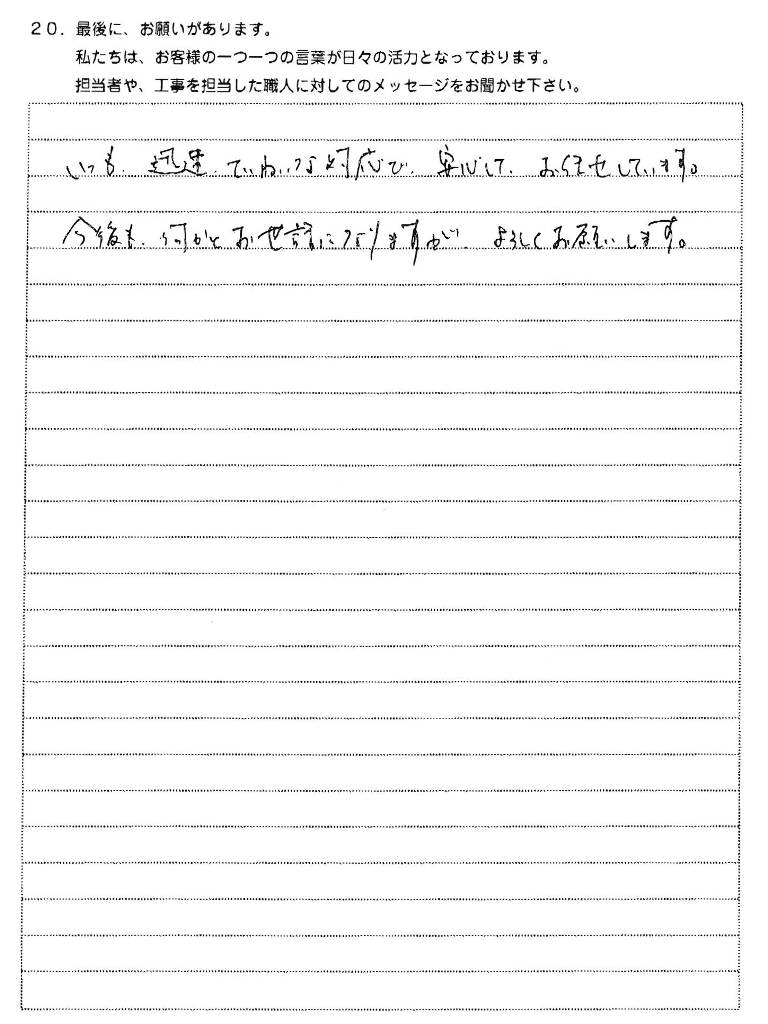 20. 最後に、お願いがあります。
私たちは、お客様の一つ一つの言葉が日々の活力となっております。
担当者や、工事を担当した職人に対してのメッセージをお聞かせ下さい。
いつも、迅速、ていねいな対応で、安心して、お任せしています。
今後も、何かとお世話になりますが、よろしくお願いします。